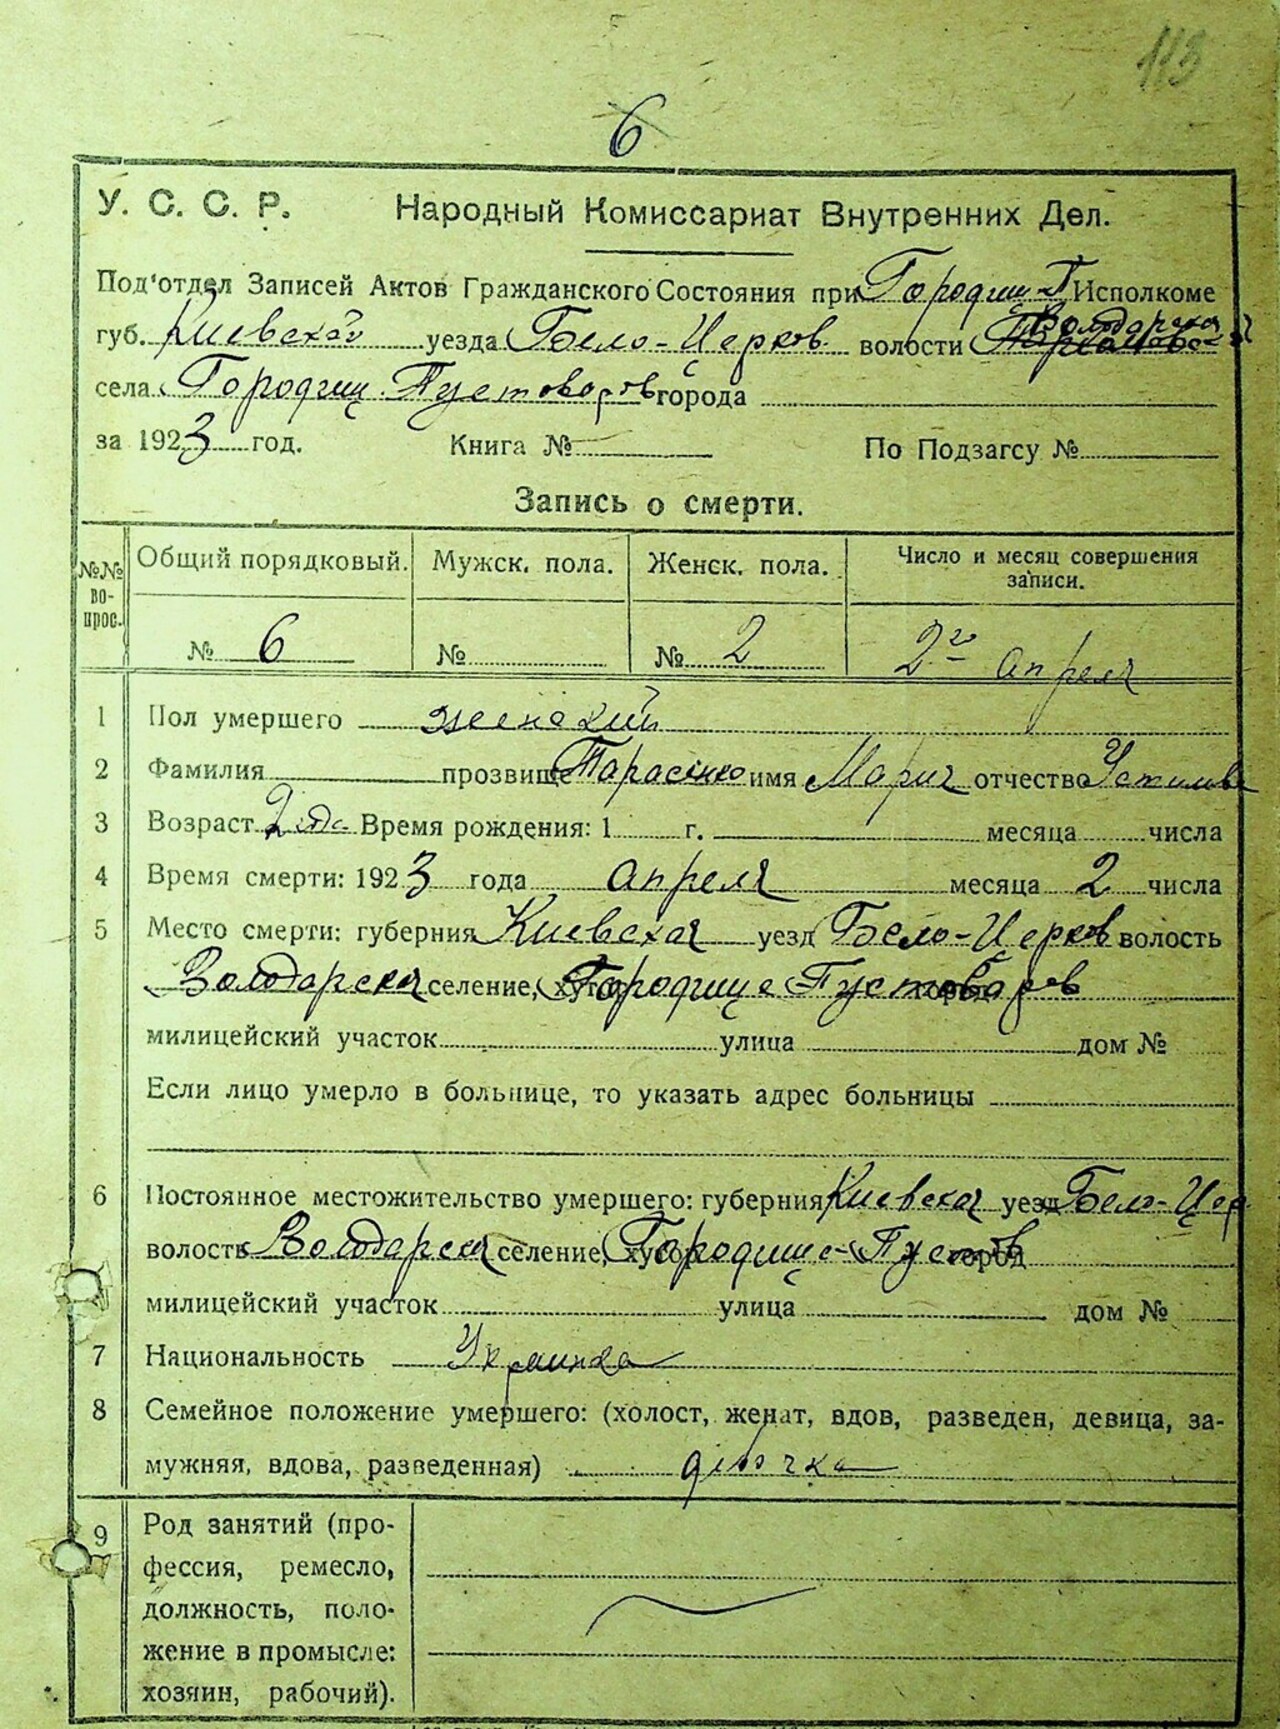 113
6
У. С. С. Р. Народный Комиссариат Внутренних Дел.
Под'отдел Записей Актов Гражданского Состояния при Городищ-П Исполкоме
губ. Киевской уезда Бело-Церков. волости Володарской
села Городищ. Пустоваров города
за 1923 год. Книга № По Подзагсу №
Запись о смерти.
№№ вопрос. Общий порядковый. Мужск. пола. Женск. пола. Число и месяц совершения
записи.
№ 6 № № 2 2го апреля
1 Пол умершего женский
2 Фамилия прозвище Тарасенко имя Мария отчество
3 Возраст 2 года Время рождения: 1 г. месяца числа
4 Время смерти: 1923 года апреля месяца 2 числа
5 Место смерти: губерния Киевская уезд Бело-Церков волость
Володарская селение, хутор Городище Пустоваров город
милицейский участок улица дом №
Если лицо умерло в больнице, то указать адрес больницы
6 Постоянное местожительство умершего: губерния Киевская уезд Бело-Цер
волость Володарская селение, хутор Городище-Пустов город
милицейский участок улица дом №
7 Национальность Украинка
8 Семейное положение умершего: (холост, женат, вдов, разведен, девица, за-
мужняя, вдова, разведенная) дівочка
9 Род занятий (про-
фессия, ремесло,
должность, поло-
жение в промысле:
хозяин, рабочий).